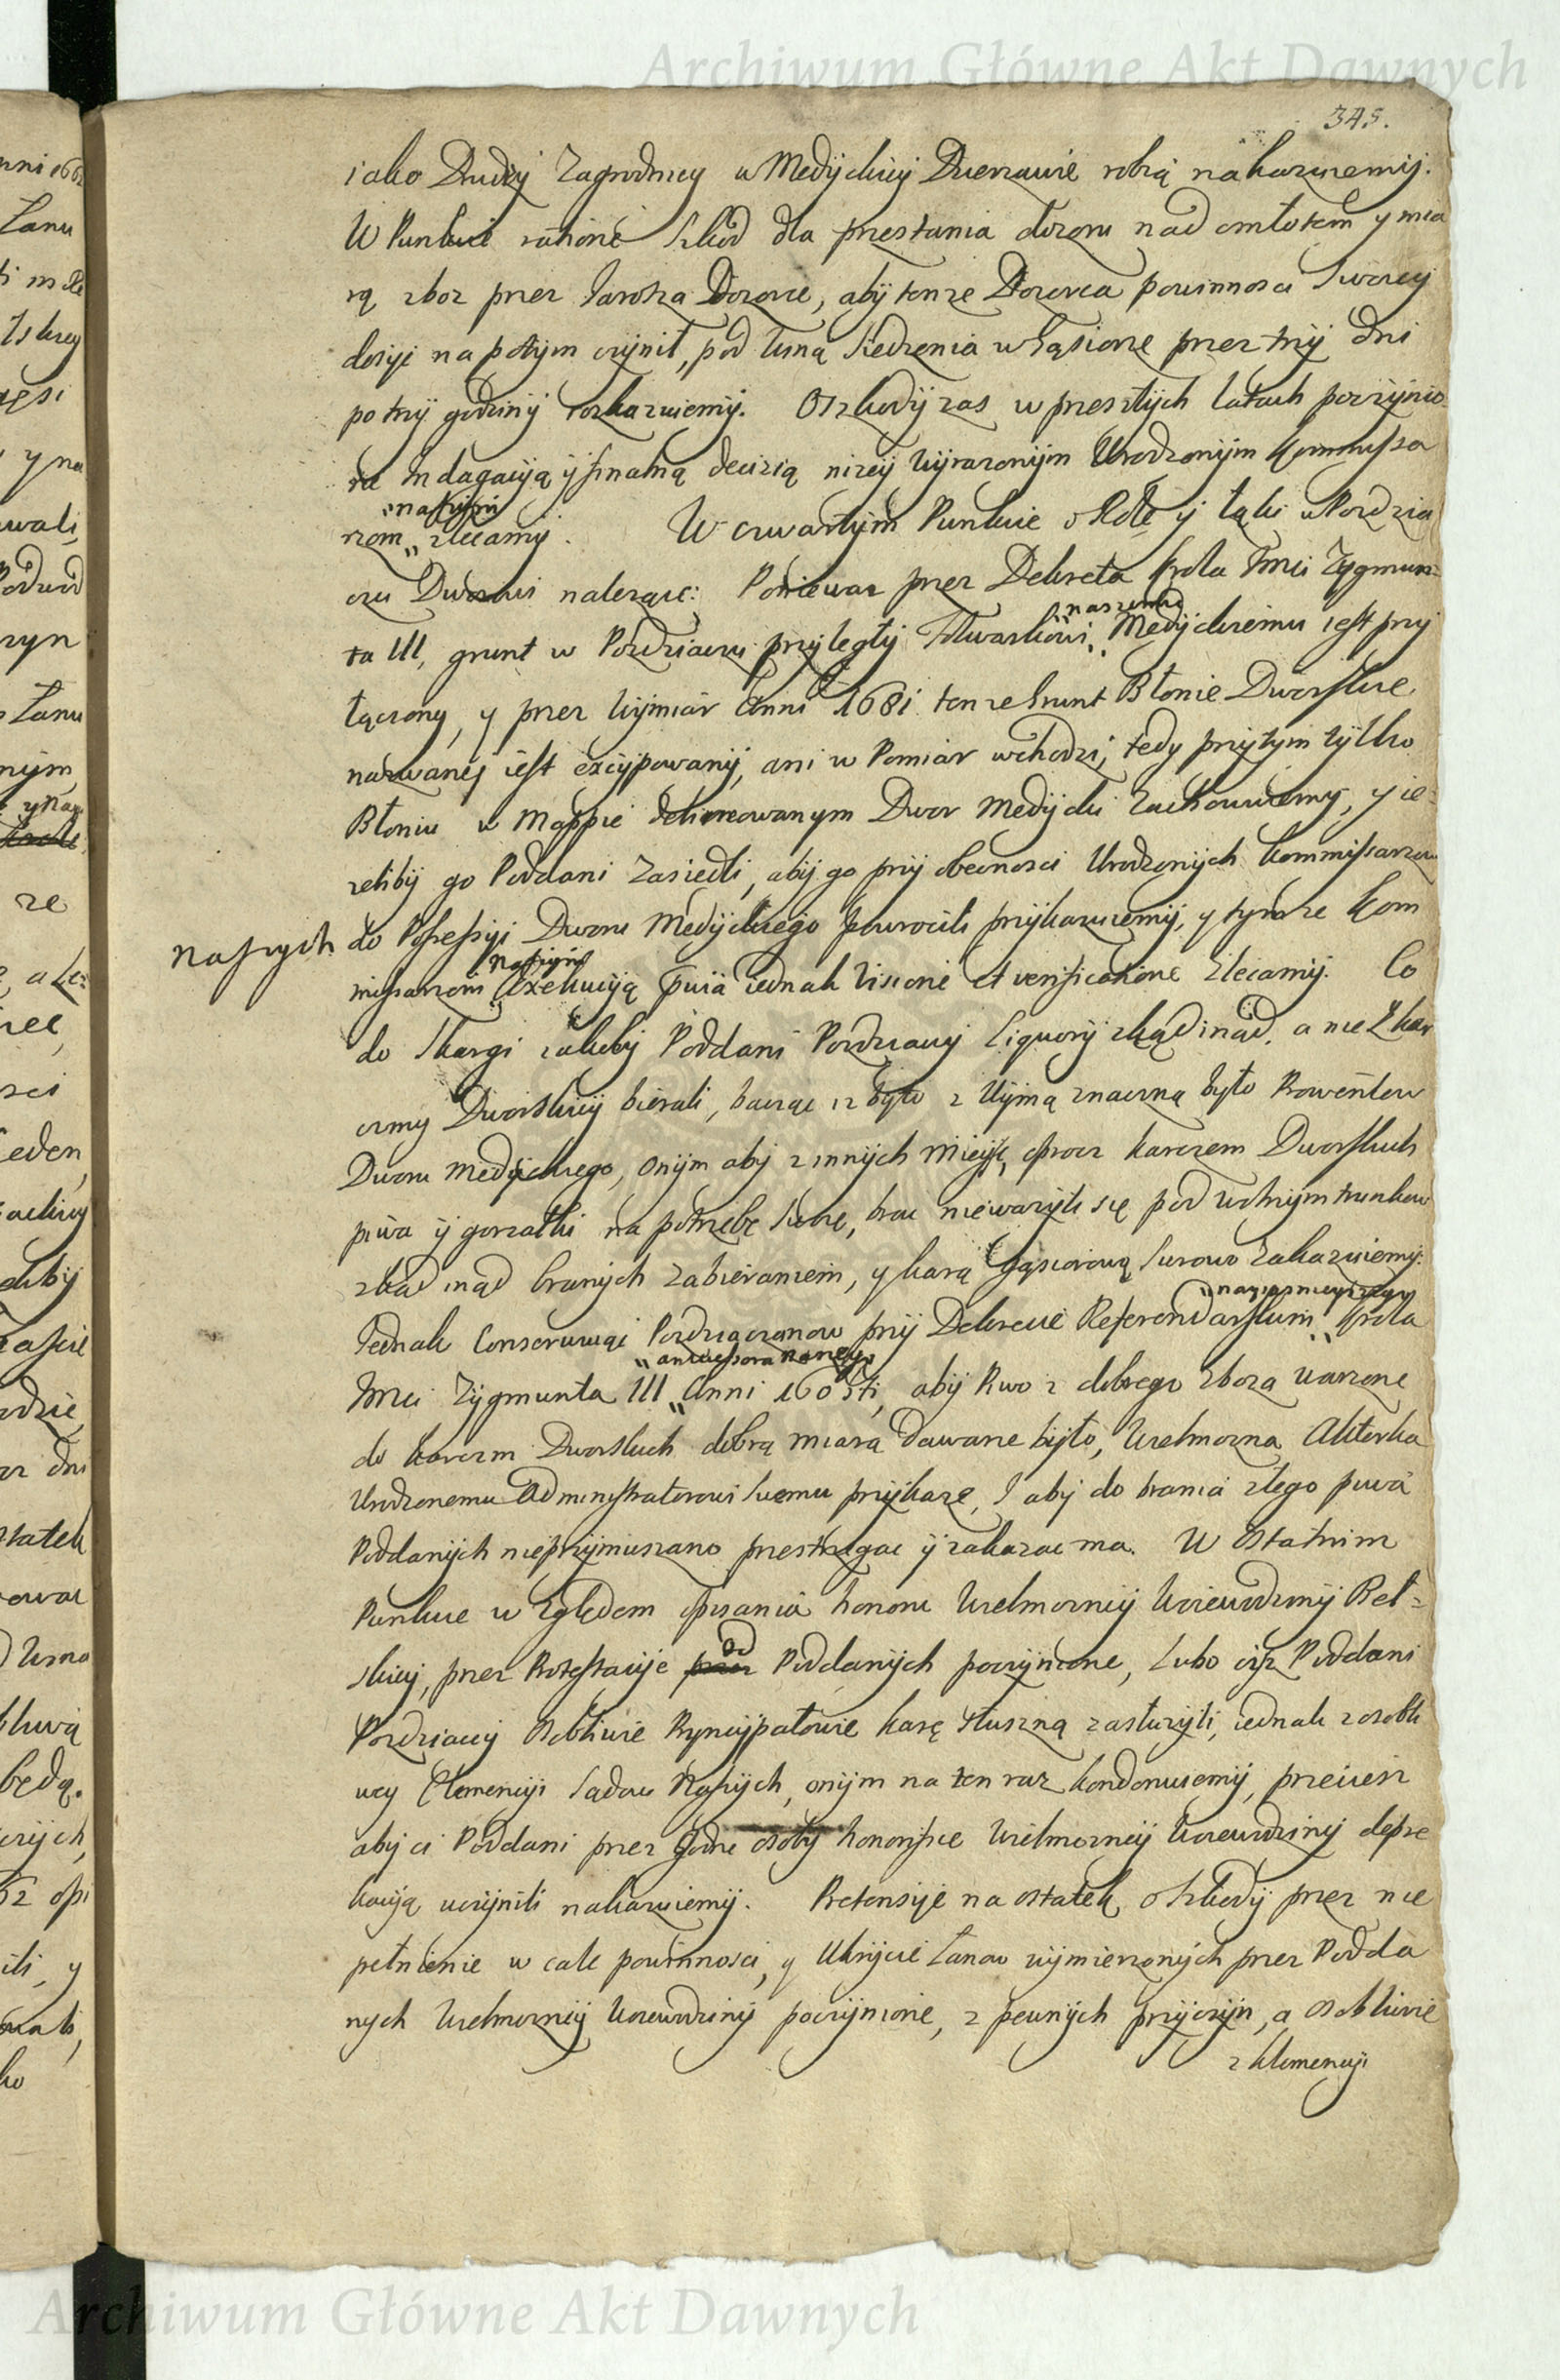 Archiwum Główne Akt Dawnych
345.
iako Drudzy Zagrodnicy w Medyckiey Dzierzawie robią nakazuiemy.
W Punkcie ratione szkod dla przestania dozoru nad omłotem y mia
rą zboz przez Jarosza Dozorcę, aby tenze Dozorca powinnosci swoiey
dosyc na potym czynił, pod winą siedzenia w Gąsiorze przez trzy dni
po trzy godziny roskazuiemy. O szkody zas w przeszłych latach poczynio-
ne Indagacyą y finalną decizią nizey wyrazonym Urodzonym Kommissa
naszym
rzom „ zlecamy. W czwartym Punkcie o Rolę y łąki w Pozdzia
czu Dworowi nalezące: Poniewaz przez Dekreta Krola Jmci Zygmun=
naszemu
ta III, grunt w Pozdziaczu przyległy Folwarkowi „ Medyckiemu iest przy
łączony, y przez wymiar Anni 1681 tenze Grunt Błonie Dworskie
nazwany iest excypowany, ani w Pomiar wchodzi, tedy przy tym tylko
Błoniu w Mappie delineowanym Dwor Medycki zachowuiemy, y ie=
zeliby go Poddani zasiedli, aby go przy obecnosci Urodzonych Kommissarzow
naszych
do Possessyi Dworu Medyckiego powrocili przykazuiemy, y tymze Kom
naszym
missarzom „ Exekucyą pviâ iednak visione et verificatione zlecamy. Co
do skargi iakoby Poddani Pozdziaccy Liquory zkąd inąd, a nie z kar
czmy Dworskiey bierali, bacząc iz by to z uymą znaczną było Prowentow
Dworu Medyckiego, onym aby z innych mieysc, oprocz karczem Dworskich
piwa y gorzałki na potrzebę swoię, brac niewazyli się pod wolnym trunkow
zkąd inąd branych zabieraniem, y karą gąsiorową surowo zakazuiemy.
„nayiasnieyszego
Jednak conserwuiąc Pozdziaczanow przy Dekrecie Referendarskim „ Krola
„antecessora naszego
Jmci Zygmunta III „ Anni 1605ti, aby Piwo z dobrego zboza warzone
do karczm Dworskich dobrą miarą dawane było, Wielmozna Aktorka
Urodzonemu Administratorowi swemu przykaze, y aby do brania złego piwa
Poddanych nieprzymuszano przestrzegac y zakazac ma. W Ostatnim
Punkcie względem opisania honoru Wielmozney Woiewodziny Beł=
od
skiey, przez Protestacye przez Poddanych poczynione, lubo ciz Poddani
Pozdziaccy osobliwie Pryncypałowie karę słuszną zasłuzyli, iednak z osobli
wey Clemencyi Sądow Naszych, onym na ten raz kondonuiemy, przeciesz
aby ci Poddani przez godne osoby honorifice Wielmozney Woiewodziny depre
kacyą uczynili nakazuiemy. Pretensye na ostatek o szkody przez nie
pełnienie w cale powinnosci, y Ukrycie Łanow wymierzonych przez Podda
nych Wielmozney Woiewodziny poczynione, z pewnych przyczyn, a osobliwie
z klemencyi
Archiwum Główne Akt Dawnych